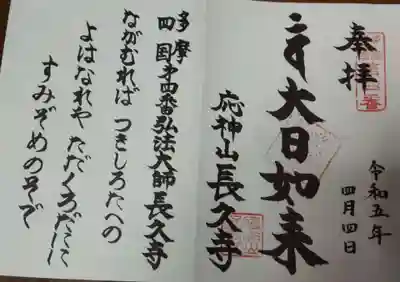 奉拝
令和五年
四月四日
大日如来
応神山長久寺
多摩
四国第四番弘法大師長久寺
ながむれば つきしろたへの
よはなれや ただくろだにに
すみぞめのそで